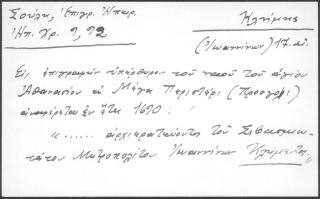 Σούλη, Ἐπιγρ. Ἠπειρ.
Ἠπ. Χρ. 9, 92
Κλήμης
(Ἰωαννίνων) 17 αἰ.
Εἰς ἐπιγραφὴν ὑπέρθυρον τοῦ ναοῦ τοῦ ἁγίου
Ἀθανασίου ἐν Μέγα Περιστέρι
ἀναφέρεται ἐν ἔτει 1690 :
"...... ἀρχιερατεύοντος τοῦ Σεβασμιω-
τάτου Μητροπολίτου Ἰωαννίνων Κλήμεντος"